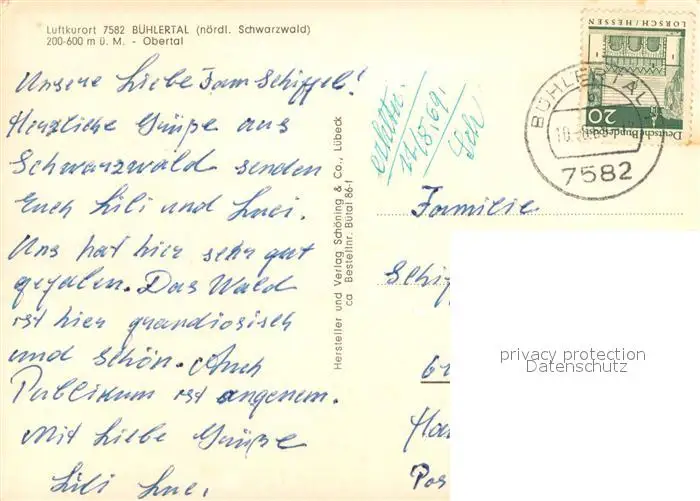 Luftkurort 7582 BÜHLERTAL (nördl. Schwarzwald)
200-600 m ü. M. - Obertal
Unsere Liebe Fam Schiffel!
Herzliche Grüße aus
Schwarzwald senden
Euch Lili und
Uns hat hier sehr gut
gefalen. Das Wald
ist hier grandiosisch
und schön. Auch
Publikum ist angenem.
Mit Liebe Grüße
Lili
Hersteller und Verlag Schöning & Co., Lübeck
ca Bestellnr. Bütal 86-f
11.8.69.
Sch
LORSCH / HESSEN
Deutsche Bundespost
20
BÜHLERTAL
7582
Familie
Schif
61
Ha
Pos
privacy protection
Datenschutz